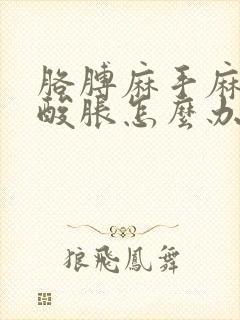 胳膊麻手麻
酸脹怎麼办
狼飛鳳舞